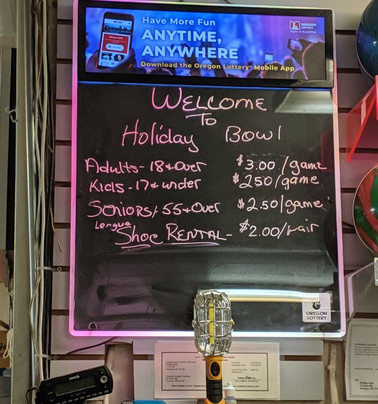 Have More Fun
ANYTIME,
ANYWHERE
Download the Oregon Lottery® Mobile App
WELCOME
To
Holiday Bowl
Adults - 18+over $3.00/game
Kids - 17+under $2.50/game
Seniors/ 55+Over $2.50/game
League
Shoe RENTAL - $2.00/Pair
OREGON
LOTTERY